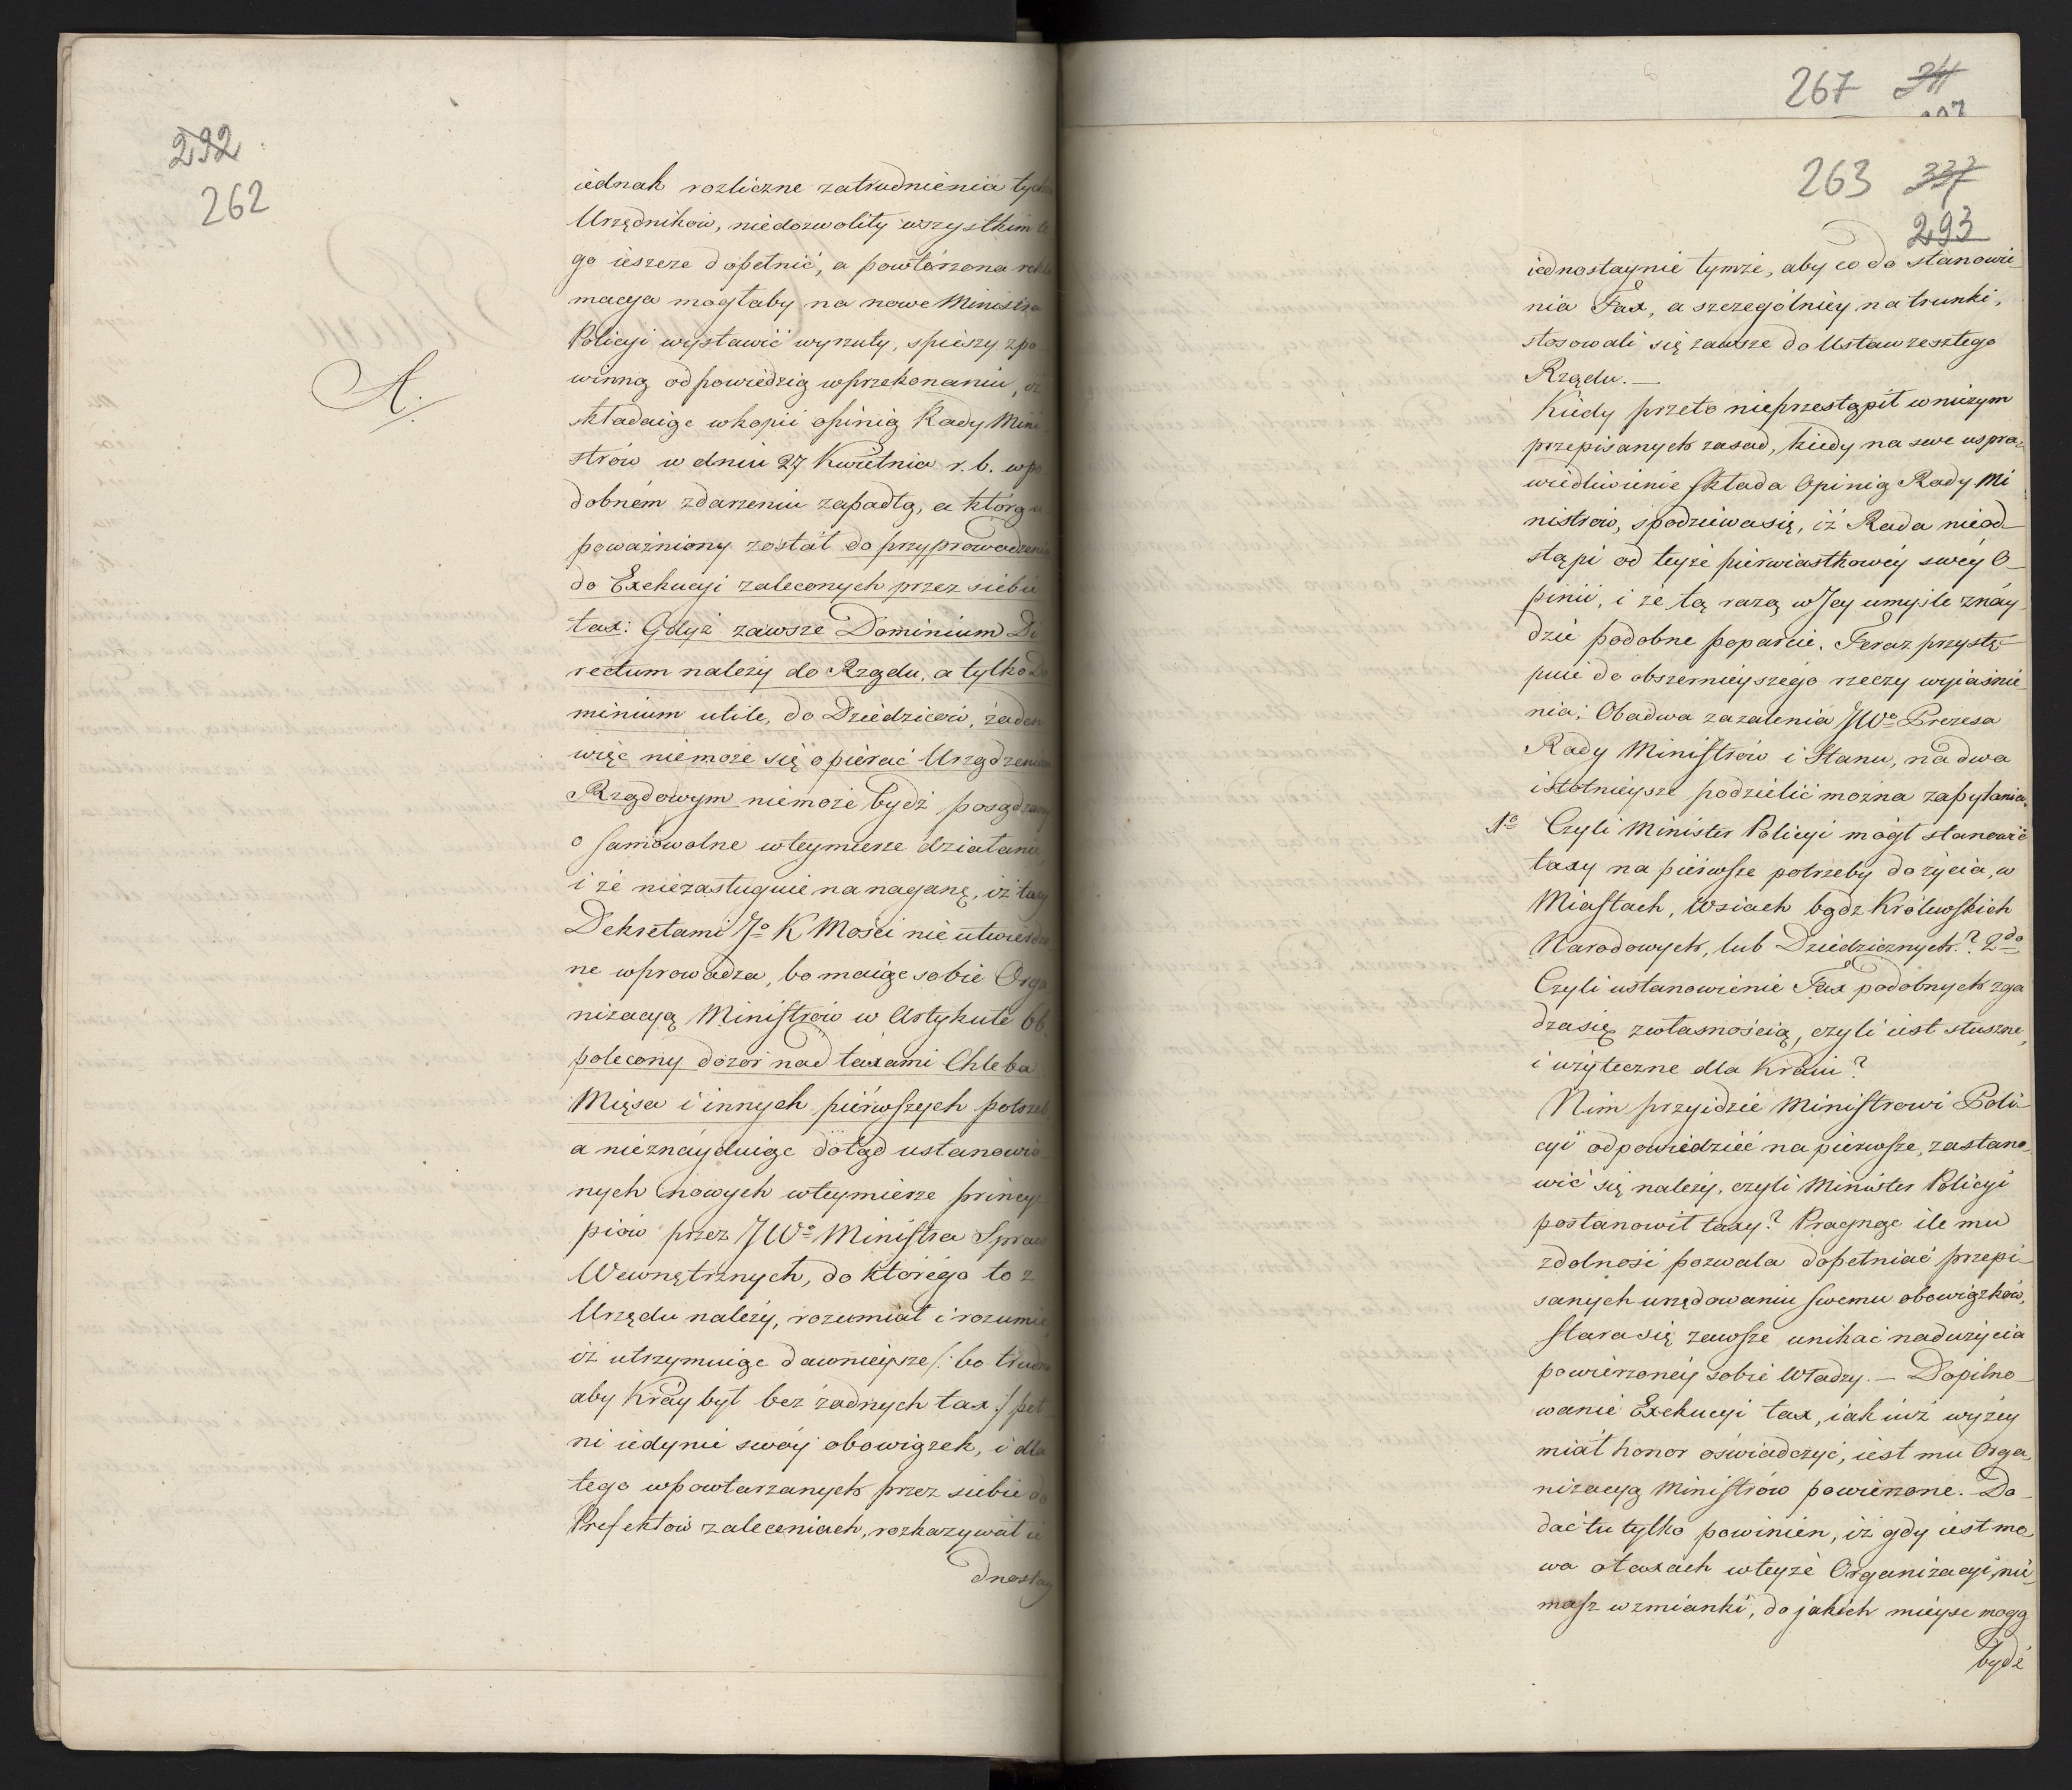 292
262
A.
iednak rozliczne zatrudnienia tychże
Urzędników, niedozwoliły wszystkim te
go ieszcze dopełnić, a powtórzona rekla
macya mogłaby na nowe Ministra
Policyi wystawić wyrzuty, spieszy z po
winną odpowiedzią w przekonaniu, iż
składaiąc w kopii opinią Rady Mini
strów w dniu 27 Kwietnia r. b. w po
dobném zdarzeniu zapadłą, a którą u
poważniony został do przyprowadzenia
do Exekucyi zaleconych przez siebie
tax: Gdyż zawsze Dominium Di
rectum należy do Rządu, a tylko Do
minium utile, do Dziedziców, żaden
więc niemoże się opiérać Urządzeniom
Rządowym niemoże bydź posądzony
o samowolne w teymierze działanie,
i że niezasługuie na naganę, iż taxy
Dekretami Jo K Mości nie utwierdzo
ne wprowadza, bo maiąc sobie Orga
nizacyą Ministrów w Artykule 66.
polecony dozór nad taxami Chleba
Mięsa i innych piérwszych potrzeb
a nieznayduiąc dotąd ustanowio
nych nowych w teymierze princy
piów przez JWo Ministra Spraw
Wewnętrznych, do którégo to z
Urzędu należy, rozumiał i rozumie,
iż utrzymuiąc dawnieysze /: bo trudno
aby Kray był bez żadnych tax :/ peł
ni iedynie swóy obowiązek, i dla
tego w powtarzanych przez siebie do
Prefektów zaleceniach, rozkazywał ie
dnostay
267 341
263 337
293
iednostaynie tymże, aby co do stanowie
nia Tax, a szczególniéy na trunki,
stosowali się zawsze do Ustaw zeszłego
Rządu. —
Kiedy przeto nieprzestąpił w niczym
przepisanych zasad, kiedy na swe uspra
wiedliwienie składa Opinią Rady Mi
nistrów, spodziewa się, iż Rada nieod
stąpi od teyże pierwiastkowéy swéy O
pinii, i że tą razą w Jey umyśle znay
dzie podobne poparcie. Teraz przystę
puie do obszernieyszégo rzeczy wyiaśnie
nia: Obadwa zażalenia JWo Prezesa
Rady Ministrów i Stanu, na dwa
istotnieysze podzielić można zapytania.
1o Czyli Minister Policyi mógł stanowić
taxy na piérwsze potrzeby do życia, w
Miastach, Wsiach bądz Królewskich
Narodowych, lub Dziedzicznych? 2do
Czyli ustanowienie Tax podobnych zga
dza się z własnością, czyli iest słuszne,
i użyteczne dla Kraiu?
Nim przyidzie Ministrowi Poli
cyi odpowiedzieć na piérwsze, zastano
wić się należy, czyli Minister Policyi
postanowił taxy? Pragnąc ile mu
zdolność pozwala dopełniać przepi
sanych urzędowaniu swemu obowiązków,
stara się zawsze unikać nadużycia
powierzonéy sobie Władzy. — Dopilno
wanie Exekucyi tax, iak iuż wyżéy
miał honor oświadczyć, iest mu Orga
nizacyą Ministrów powierzone. Do
dać tu tylko powinien, iż gdy iest mo
wa o taxach w teyże Organizacyi, nie
masz wzmianki, do jakich mieysc mogą
bydź